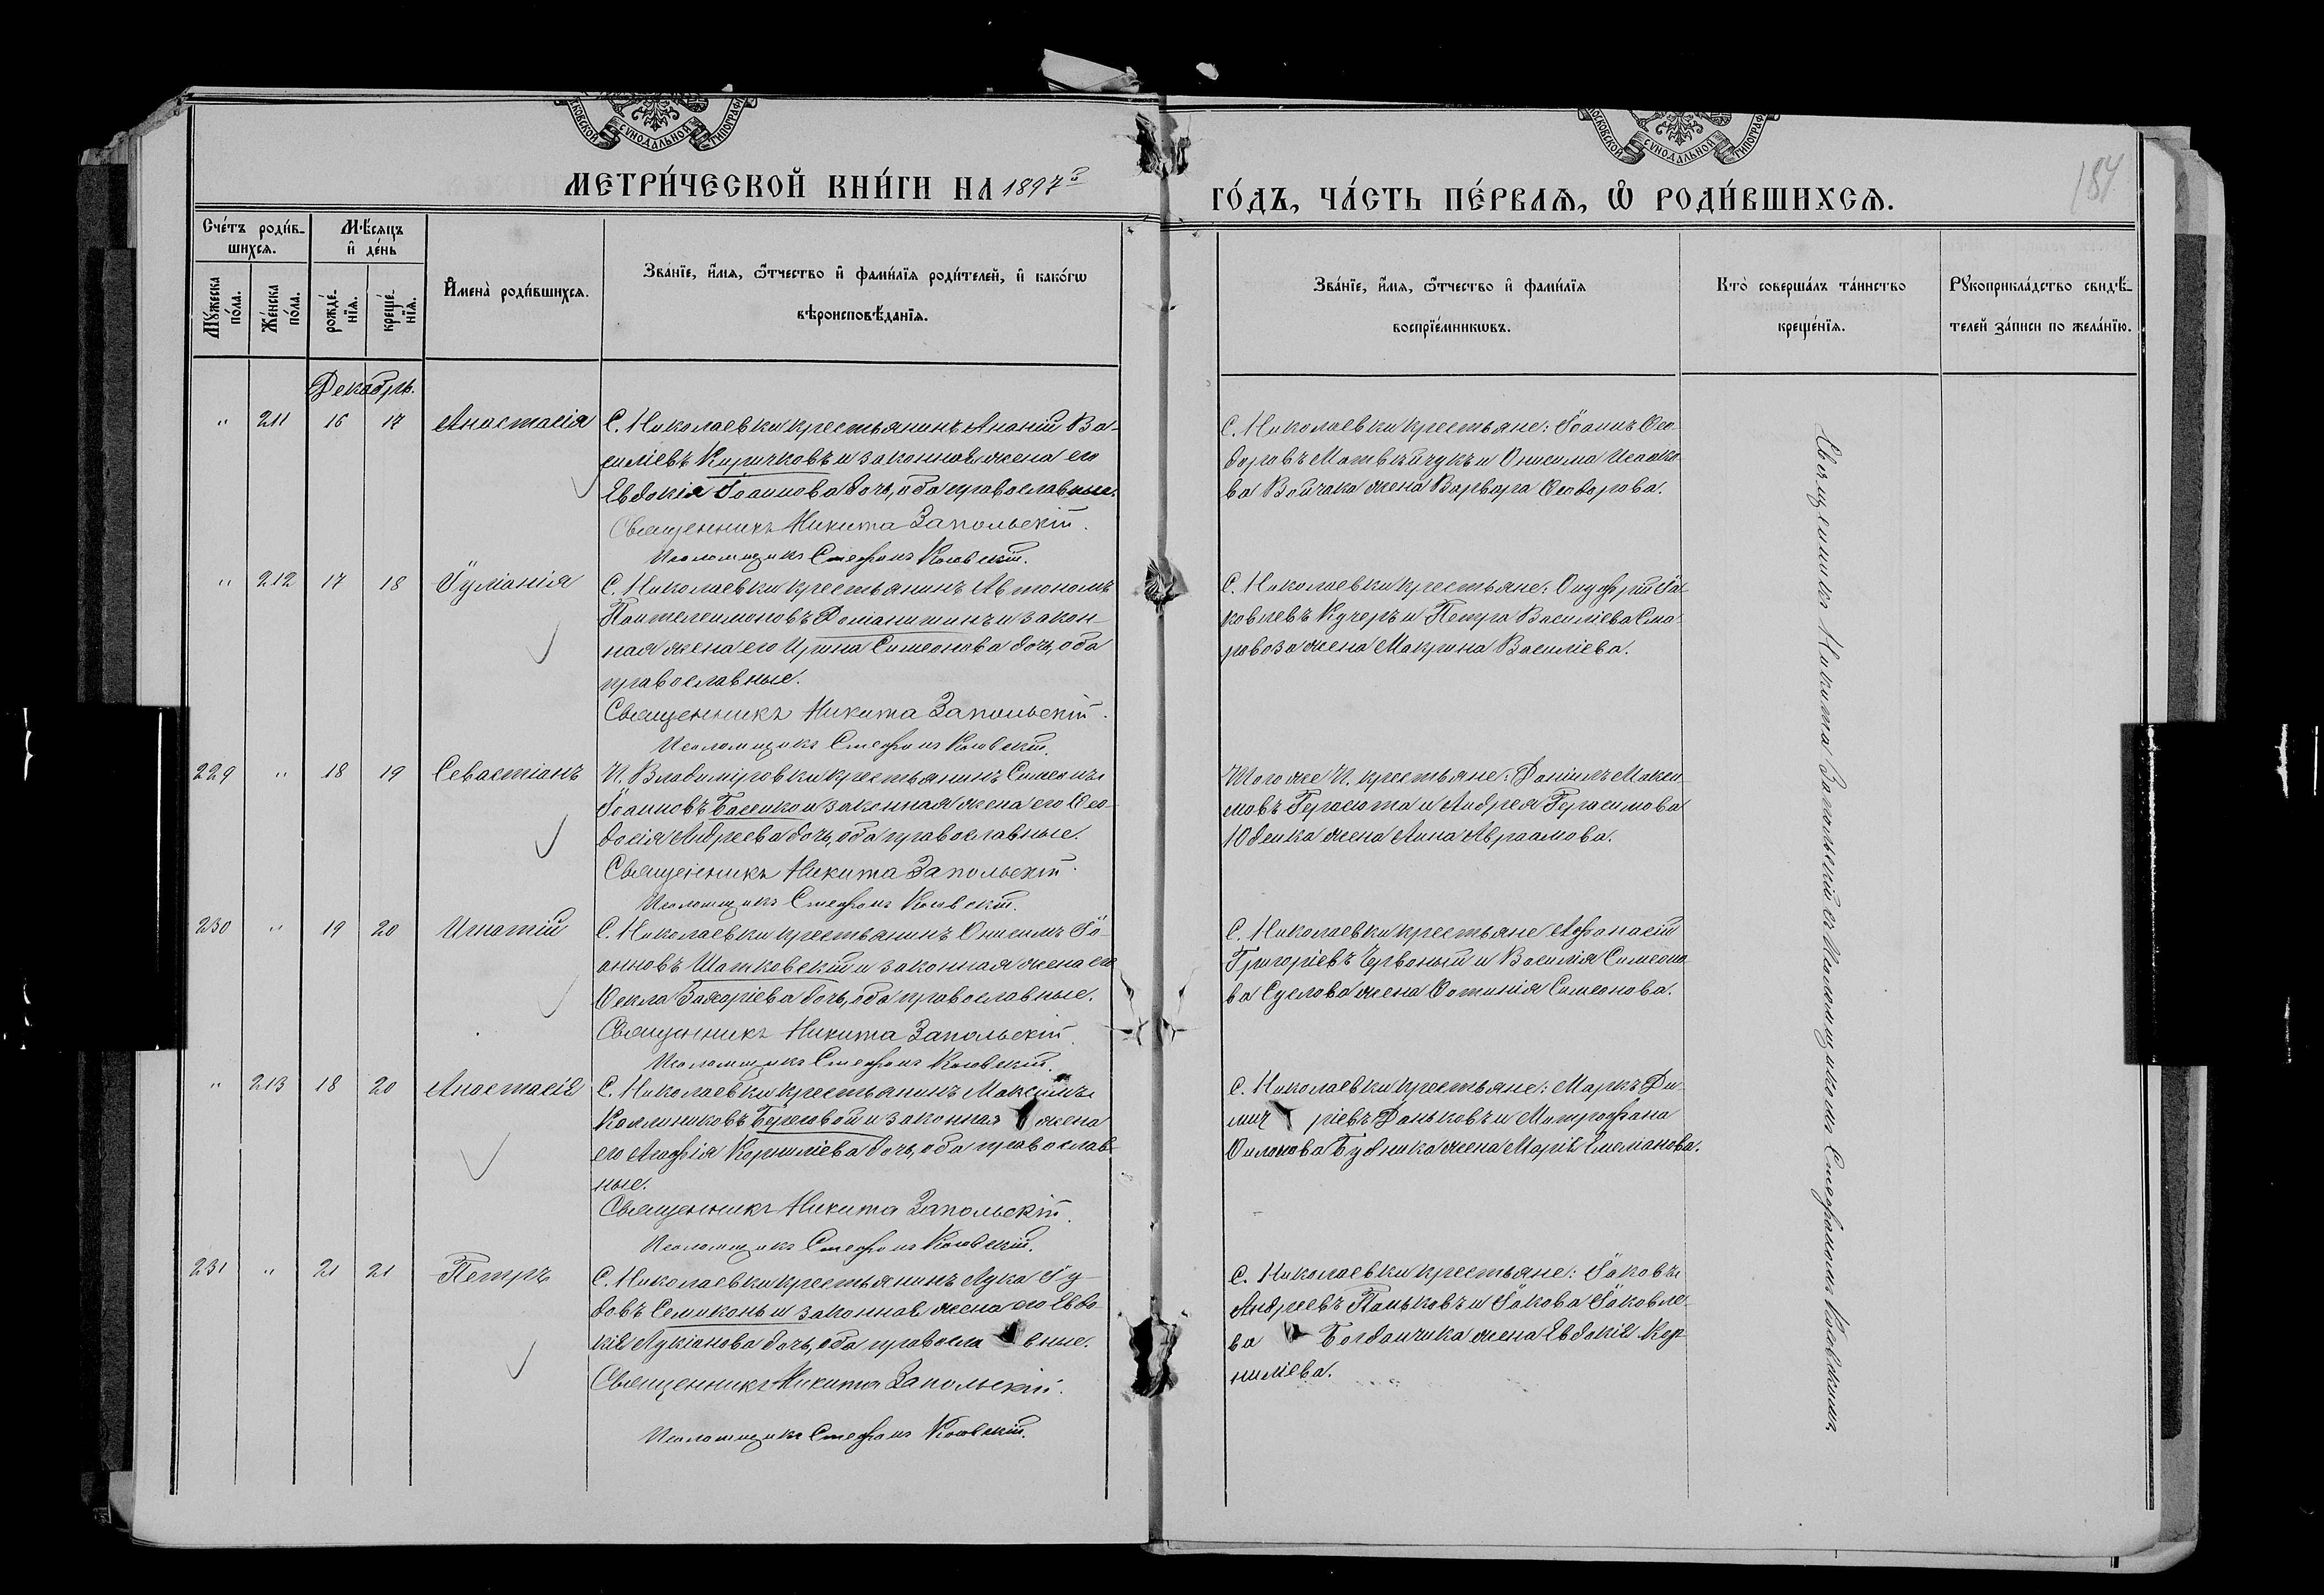 МОСКОВСКОЙ СѴНОДАЛЬНОЙ ТИПОГРАФ
МОСКОВСКОЙ СѴНОДАЛЬНОЙ ТИПОГРАФ
МЕТРИ́ЧЕСКОЙ КНИ́ГИ НА 1897 й
ГО́ДЪ, ЧА́СТЬ ПЕ́РВАЯ, Ѡ РОДИ́ВШИХСЯ.
184
Сче́тъ роди́в-
шихся.
Мѣ́сяцъ
и҆ де́нь
Мꙋ́жеска по́ла.
Же́нска по́ла.
рожде́-нїя.
креще́-нїя.
И҆мена̀ роди́вшихся.
Зва́нїе, и҆́мя, ѻ҆́тчество и҆ фами́лїя роди́телей, и҆ како́гѡ
вѣроисповѣ́данїя.
Зва́нїе, и҆́мя, ѻ҆́тчество и҆ фами́лїя
воспрїе́мникѡвъ.
Кто̀ соверша́лъ та́инство
креще́нїя.
Рꙋкоприкла́дство свидѣ́-
телей за́писи по жела́нїю.
Декабрь.
" 211 16 17 Анастасія
С. Николаевки крестьянинъ Ананій Ва-
силіевъ Киричковъ и законная жена его
Евдокія Іоаннова дочь, оба православные.
Священникъ Никита Запольскій.
Псаломщикъ Стефанъ Косовскій.
С. Николаевки крестьяне: Іоаннъ Ѳео-
доровъ Матвѣйчукъ и Онисима Исаако-
ва Войчака жена Варвара Ѳеодорова.
" 212 17 18 Іуліанія
С. Николаевки крестьянинъ Автономъ
Пантелеимоновъ Романишинъ и закон-
ная жена его Ирина Симеонова дочь, оба
православные.
Священникъ Никита Запольскій.
Псаломщикъ Стефанъ Косовскій.
С. Николаевки крестьяне: Онуфрій Іа-
ковлевъ Кучеръ и Петра Василіева Смо-
ровоза жена Макрина Василіева.
229 " 18 19 Севастіанъ
И. Владиміровки крестьянинъ Симеонъ
Іоанновъ Басенко и законная жена его Ѳео-
досія Андреева дочь, оба православные.
Священникъ Никита Запольскій.
Псаломщикъ Стефанъ Косовскій.
Того же И. крестьяне: Даніилъ Макси-
мовъ Герасюта и Андрея Герасимова
Юденка жена Анна Авраамова.
230 " 19 20 Игнатій
С. Николаевки крестьянинъ Онисимъ Іо-
анновъ Шатковскій и законная жена его
Ѳекла Захаріева дочь, оба православные.
Священникъ Никита Запольскій.
Псаломщикъ Стефанъ Косовскій.
С. Николаевки крестьяне Аѳанасій
Григоріевъ Червоный и Василія Симеоно-
ва Суслова жена Фотинія Симеонова.
" 213 18 20 Анастасія
С. Николаевки крестьянинъ Максимъ
Каллиниковъ Береговой и законная жена
его Агафія Корниліева дочь, оба православ-
ные.
Священникъ Никита Запольскій.
Псаломщикъ Стефанъ Косовскій.
С. Николаевки крестьяне: Маркъ Ди-
митріевъ Даньковъ и Митрофана
Филонова Будника жена Марія Емеліанова.
231 " 21 21 Петръ
С. Николаевки крестьянинъ Лука Іу-
довъ Семиконь и законная жена его Евдо-
кія Лукіанова дочь, оба православные.
Священникъ Никита Запольскій.
Псаломщикъ Стефанъ Косовскій.
С. Николаевки крестьяне: Іаковъ
Андреевъ Паньковъ и Іакова Іаковле-
ва Богданчика жена Евдокія Кор-
ниліева.
Священникъ Никита Запольскій съ Псаломщикомъ Стефаномъ Косовскимъ